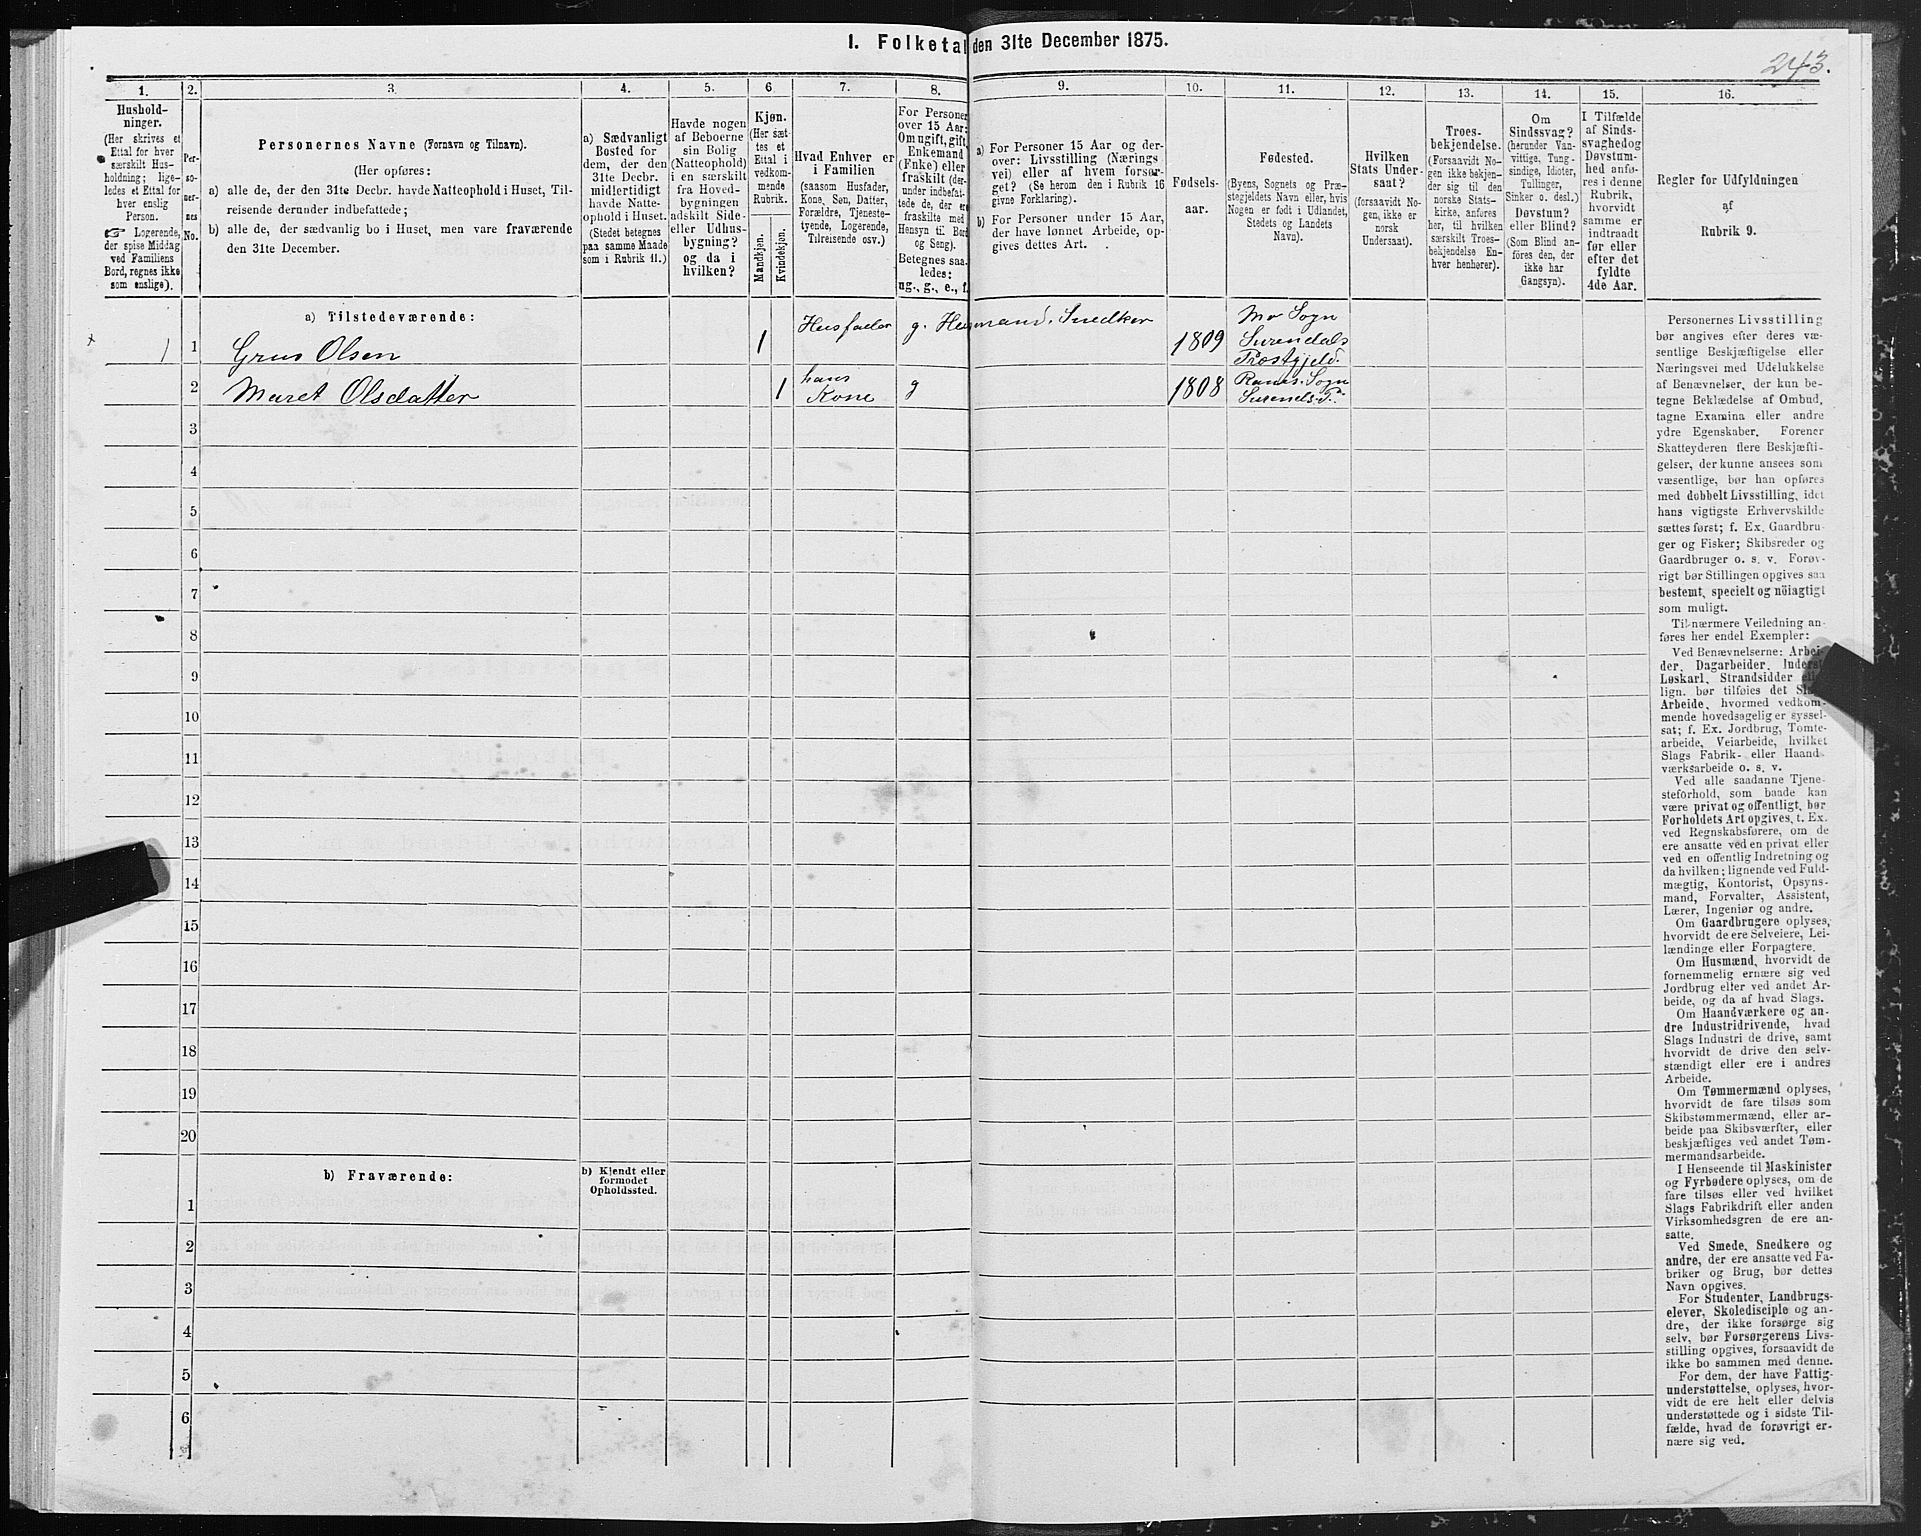 1. Folketal den 31te December 1875.
243.
1. 2. 3. 4. 5. 6 7. 8. 9. 10. 11. 12. 13. 14. 15. 16.
Hushold-
ninger.
(Her skrives et
Ettal for hver
særskilt Hus-
holdning; lige-
ledes et Ettal for
hver enslig
Person.
☞ Logerende,
der spise Middag
ved Familiens
Bord, regnes ikke
som enslige).
Per-
so-
ner-
nes
No.
Personernes Navne (Fornavn og Tilnavn).
(Her opføres:
a) alle de, der den 31te Decbr. havde Natteophold i Huset, Til-
reisende derunder indbefattede;
b) alle de, der sædvanlig bo i Huset, men vare fraværende
den 31te December.
a) Sædvanligt
Bosted for
dem, der den
31te Decbr.
midlertidigt
havde Natte-
ophold i Huset.
(Stedet betegnes
paa samme Maade
som i Rubrik 11.)
Havde nogen
af Beboerne
sin Bolig
(Natteophold)
i en særskilt
fra Hoved-
bygningen
adskilt Side-
eller Udhus-
bygning?
og da i
hvilken?
Kjøn.
(Her sæt-
tes et
Ettal i
vedkom-
mende
Rubrik.
Mandkjøn.
Kvindekjøn.
Hvad Enhver er
i Familien
(saasom Husfader,
Kone, Søn, Datter,
Forældre, Tjeneste-
tyende, Logerende,
Tilreisende osv.)
For Personer
over 15 Aar:
Om ugift, gift,
Enkemand
(Enke) eller
fraskilt (der-
under indbefat-
tede de, der ere
fraskilte med
Hensyn til Bord
og Seng).
Betegnes saa-
ledes:
ug., g., e., f.
a) For Personer 15 Aar og der-
over: Livsstilling (Nærings-
vei) eller af hvem forsør-
get? (Se herom den i Rubrik 16
givne Forklaring).
b) For Personer under 15 Aar,
der have lønnet Arbeide, op-
gives dettes Art.
Fødsels-
aar.
Fødested.
(Byens, Sognets og Præ-
stegjeldets Navn eller, hvis
Nogen er født i Udlandet,
Stedets og Landets
Navn).
Hvilken
Stats Under-
saat?
(forsaavidt No-
gen ikke er
norsk
Undersaat).
Troes-
bekjendelse.
(Forsaavidt No-
gen ikke bekjen-
der sig til den
norske Stats-
kirke, anføres
her, til hvilken
særskilt Troes-
bekjendelse En-
hver henhører).
Om
Sindssvag?
(herunder Van-
vittige, Tung-
sindige, Idioter,
Tullinger,
Sinker o. desl.)
Døvstum?
eller Blind?
(Som Blind an-
føres den, der
ikke har
Gangsyn).
I Tilfælde
af Sinds-
svaghed og
Døvstum-
hed anfø-
res i denne
Rubrik,
hvorvidt
samme er
indtraadt
før eller
efter det
fyldte
4de Aar.
Regler for Udfyldningen
af
Rubrik 9.
a) Tilstedeværende:
1 1 Grus Olsen 1 Husfader g. Husmand. Snedker 1809 Mo Sogn
Surendals
Præstgjeld.
2 Maret Olsdatter 1 hans
Kone g 1808 Ranes Sogn
Surends. P.
3
4
5
6
7
8
9
10
11
12
13
14
15
16
17
18
19
20
b) Fraværende:
b) Kjendt eller
formodet
Opholdssted.
1
2
3
4
5
6
Personernes Livsstilling
bør angives efter deres væ-
sentlige Beskjæftigelse eller
Næringsvei med Udelukkelse
af Benævnelser, der kun be-
tegne Beklædelse af Ombud,
tagne Examina eller andre
ydre Egenskaber. Forener
Skatteyderen flere Beskjæfti-
gelser, der kunne ansees som
væsentlige, bør han opføres
med dobbelt Livsstilling, idet
hans vigtigste Erhvervskilde
sættes først; f. Ex. Gaardbru-
ger og Fisker; Skibsreder og
Gaardbruger o. s. v. Forøv-
rigt bør Stillingen opgives saa
bestemt, specielt og nöiagtigt
som muligt.
Til nærmere Veiledning an-
føres her endel Exempler:
Ved Benævnelserne: Arbei-
der, Dagarbeider, Inderst,
Løskarl, Strandsidder eller
lign. bør tilføies det Slags
Arbeide, hvormed vedkom-
mende hovedsagelig er syssel-
sat; f. Ex. Jordbrug, Tomte-
arbeide, Veiarbeide, hvilket
Slags Fabrik- eller Haand-
værksarbeide o. s. v.
Ved alle saadanne Tjene-
steforhold, som baade kan
være privat og offentligt, bør
Forholdets Art opgives, t. Ex.
ved Regnskabsførere, om de
ere ansatte ved en privat eller
ved en offentlig Indretning og
da hvilken; lignende ved Fuld-
mægtig, Kontorist, Opsyns-
mand, Forvalter, Assistent,
Lærer, Ingeniør og andre.
Om Gaardbrugere oplyses,
hvorvidt de ere Selveiere, Lei-
lændinge eller Forpagtere.
Om Husmænd, hvorvidt de
fornemmelig ernære sig ved
Jordbrug eller ved andet Ar-
beide, og da af hvad Slags.
Om Haandværkere og an-
dre Industridrivende, hvad
Slags Industri de drive, samt
hvorvidt de drive den selv-
stændigt eller ere i andres
Arbeide.
Om Tømmermænd oplyses,
hvorvidt de fare tilsøs som
Skibstømmermænd, eller ar-
beide paa Skibsværfter, eller
beskjæftiges ved andet Tøm-
mermandsarbeide.
I Henseende til Maskinister
og Fyrbødere oplyses, om de
fare tilsøs eller ved hvilket
Slags Fabrikdrift eller anden
Virksomhedsgren de ere an-
satte.
Ved Smede, Snedkere og
andre, der ere ansatte ved Fa-
briker og Brug, bør dettes
Navn opgives.
For Studenter, Landbrugs-
elever, Skoledisciple og an-
dre, der ikke forsørge sig
selv, bør Forsørgerens Livs-
stilling opgives, forsaavidt de
ikke bo sammen med denne.
For dem, der have Fattig-
understøttelse, oplyses, hvor-
vidt de ere helt eller delvis
understøttede og i sidste Til-
fælde, hvad de forøvrigt er-
nære sig ved.